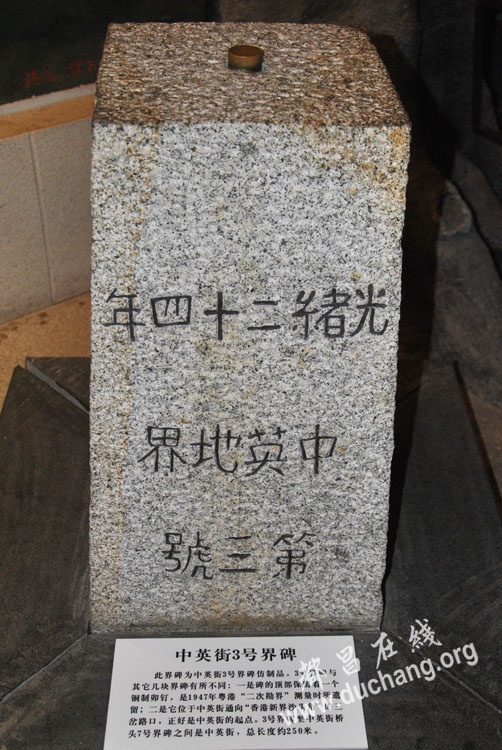 光緒二十四年
中英地界
第三號
中英街3号界碑
此界碑为中英街3号界碑仿制品。3号界碑与
其它几块界碑有所不同：一是碑的顶部保留着一个
铜制卯钉，是1947年粤港“二次勘界”测量时所遗
留；二是它位于中英街通向“香港新界沙
岔路口，正好是中英街的起点。3号界碑至中英街桥
头7号界碑之间是中英街，总长度约250米。
都昌在线
www.duchang.org